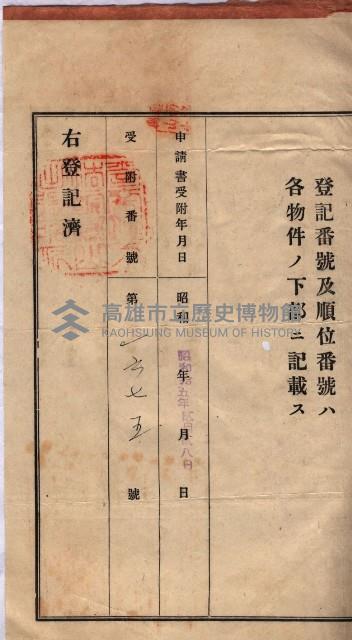 登記番號及順位番號ハ
各物件ノ下部ニ記載ス
申請書受附年月日 昭和 年 月 日
昭和拾五年弐月 八日
受附番號 第一六七五號
右登記濟
高雄市立歷史博物館
KAOHSIUNG MUSEUM OF HISTORY